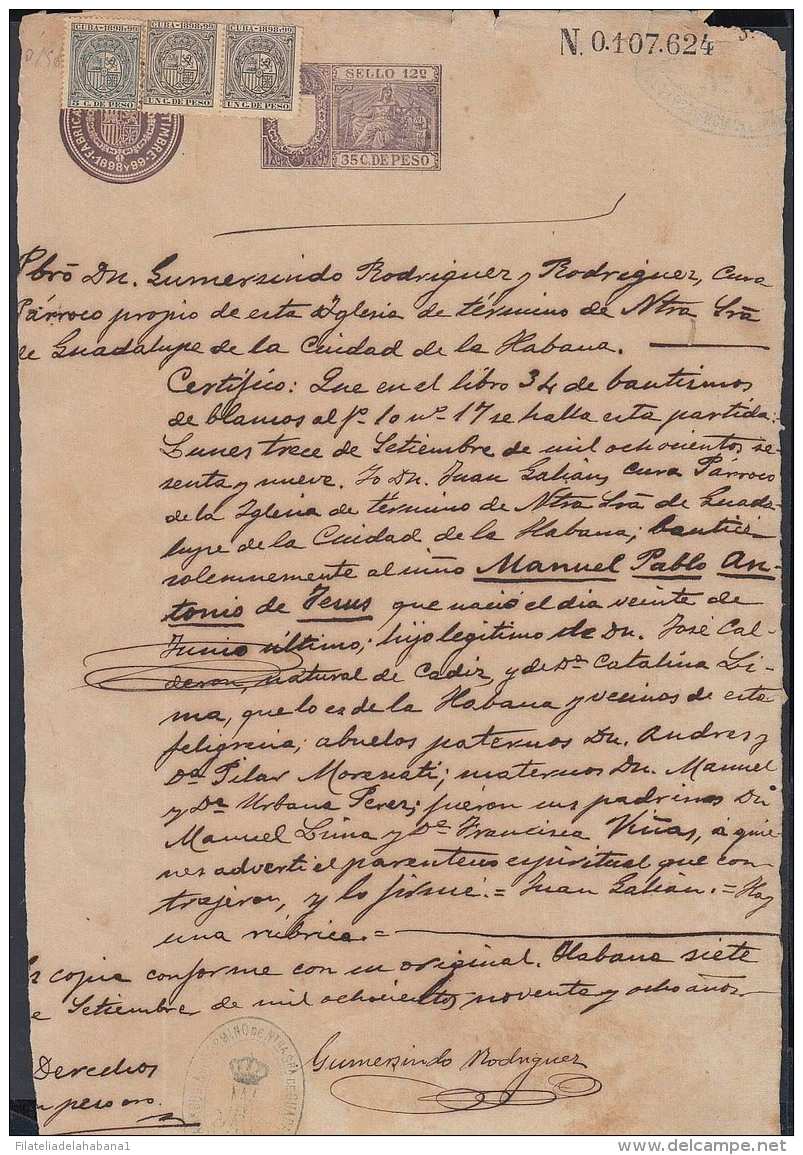 N. 0.107.624
CUBA-1898-99 CUBA-1898-99 CUBA-1898-99
5 C. DE PESO UN C. DE PESO UN C. DE PESO
SELLO 12º
35 C. DE PESO
TIMBRE 1898 Y 99
Pbrō Dn. Gumersindo Rodriguez y Rodriguez, Cura
Párroco propio de esta Yglesia de término de Ntra Srā
de Guadalupe de la Ciudad de la Habana.
Certifico: Que en el libro 34 de bautismos
de blancos al fº 10 nº 17 se halla esta partida:
Lunes trece de Setiembre de mil ochocientos se-
senta y nueve. Yo Dn. Juan Galián, Cura Párroco
de la Yglesia de término de Ntra Srā de Guada-
lupe de la Ciudad de la Habana; bauticé
solemnemente al niño Manuel Pablo An-
tonio de Jesus que nació el dia veinte de
Junio último; hijo legitimo de Dn. José Cal-
deron, natural de Cadiz, y de Dª Catalina Li-
ma, que lo es de la Habana y vecinos de esta
feligresia; abuelos paternos Dn. Andres y
Dª Pilar; maternos Dn. Manuel
y Dª Urbana Perez; fueron sus padrinos Dn
Manuel Lima y Dª Francisca Viñas, á quie-
nes adverti el parentesco espiritual que con-
trajeron, y lo firmé. = Juan Galián. = Hay
una rúbrica. =
Es copia conforme con su original. Habana siete
de Setiembre de mil ochocientos noventa y ocho años.
Gumersindo Rodriguez
Derechos
un peso oro.
Filateliadelahabana1
delcampe.net